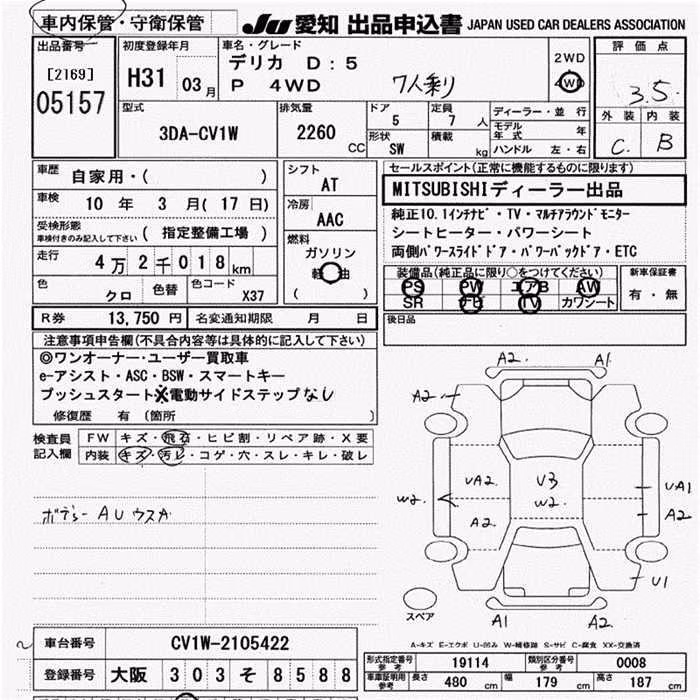 車内保管・守衛保管 JU 愛知 出品申込書 JAPAN USED CAR DEALERS ASSOCIATION
出品番号 初度登録年月 車名・グレード 評価点
[2169] H31 03月 デリカ D:5 2WD
05157 P 4WD 7人乗り 4WD 3.5
型式 排気量 ドア 定員 ディーラー・並行 外装 内装
3DA-CV1W 2260 CC 5 7人 モデル年式 年 C. B
形状 積載 ハンドル 左・右
SW kg
車歴 自家用・( ) シフト AT セールスポイント(正常に機能するものに限ります)
車検 10年 3月(17日) 冷房 AAC MITSUBISHIディーラー出品
受検形態 車検付きのみ記入して下さい (指定整備工場) 燃料 純正10.1インチナビ・TV・マルチアラウンドモニター
走行 4万2千018km ガソリン シートヒーター・パワーシート
軽油 両側パワースライドドア・パワーバックドア・ETC
色 クロ 色替 色コード X37 ( ) 装備品(純正品に限り○をつけてください) 新車保証書
PS PW エアB AW 有・無
SR ナビ TV カワシート
R券 13,750円 名変通知期限 月 日 後日品
注意事項申告欄(不具合内容等は具体的に記入して下さい)
◎ワンオーナー・ユーザー買取車
e-アシスト・ASC・BSW・スマートキー
プッシュスタート※電動サイドステップなし
修復歴 有 (箇所 )
検査員記入欄 FW キズ・飛石・ヒビ割・リペア跡・X要
内装 キズ・汚レ・コゲ・穴・スレ・キレ・破レ
ボデーAUウスガ
A2. A1
A2
UA2 U3 UA1
W2. W2. A2
A2
U1
スペア A1 A2
A-キズ E-エクボ U-凹み W-補修跡 S-サビ C-腐食 XX-交換済
車台番号 CV1W-2105422
型式指定番号 参考 19114 類別区分番号 参考 0008
登録番号 大阪 303 そ 8588
車庫証明用 参考 長さ 480cm 幅 179cm 高さ 187cm